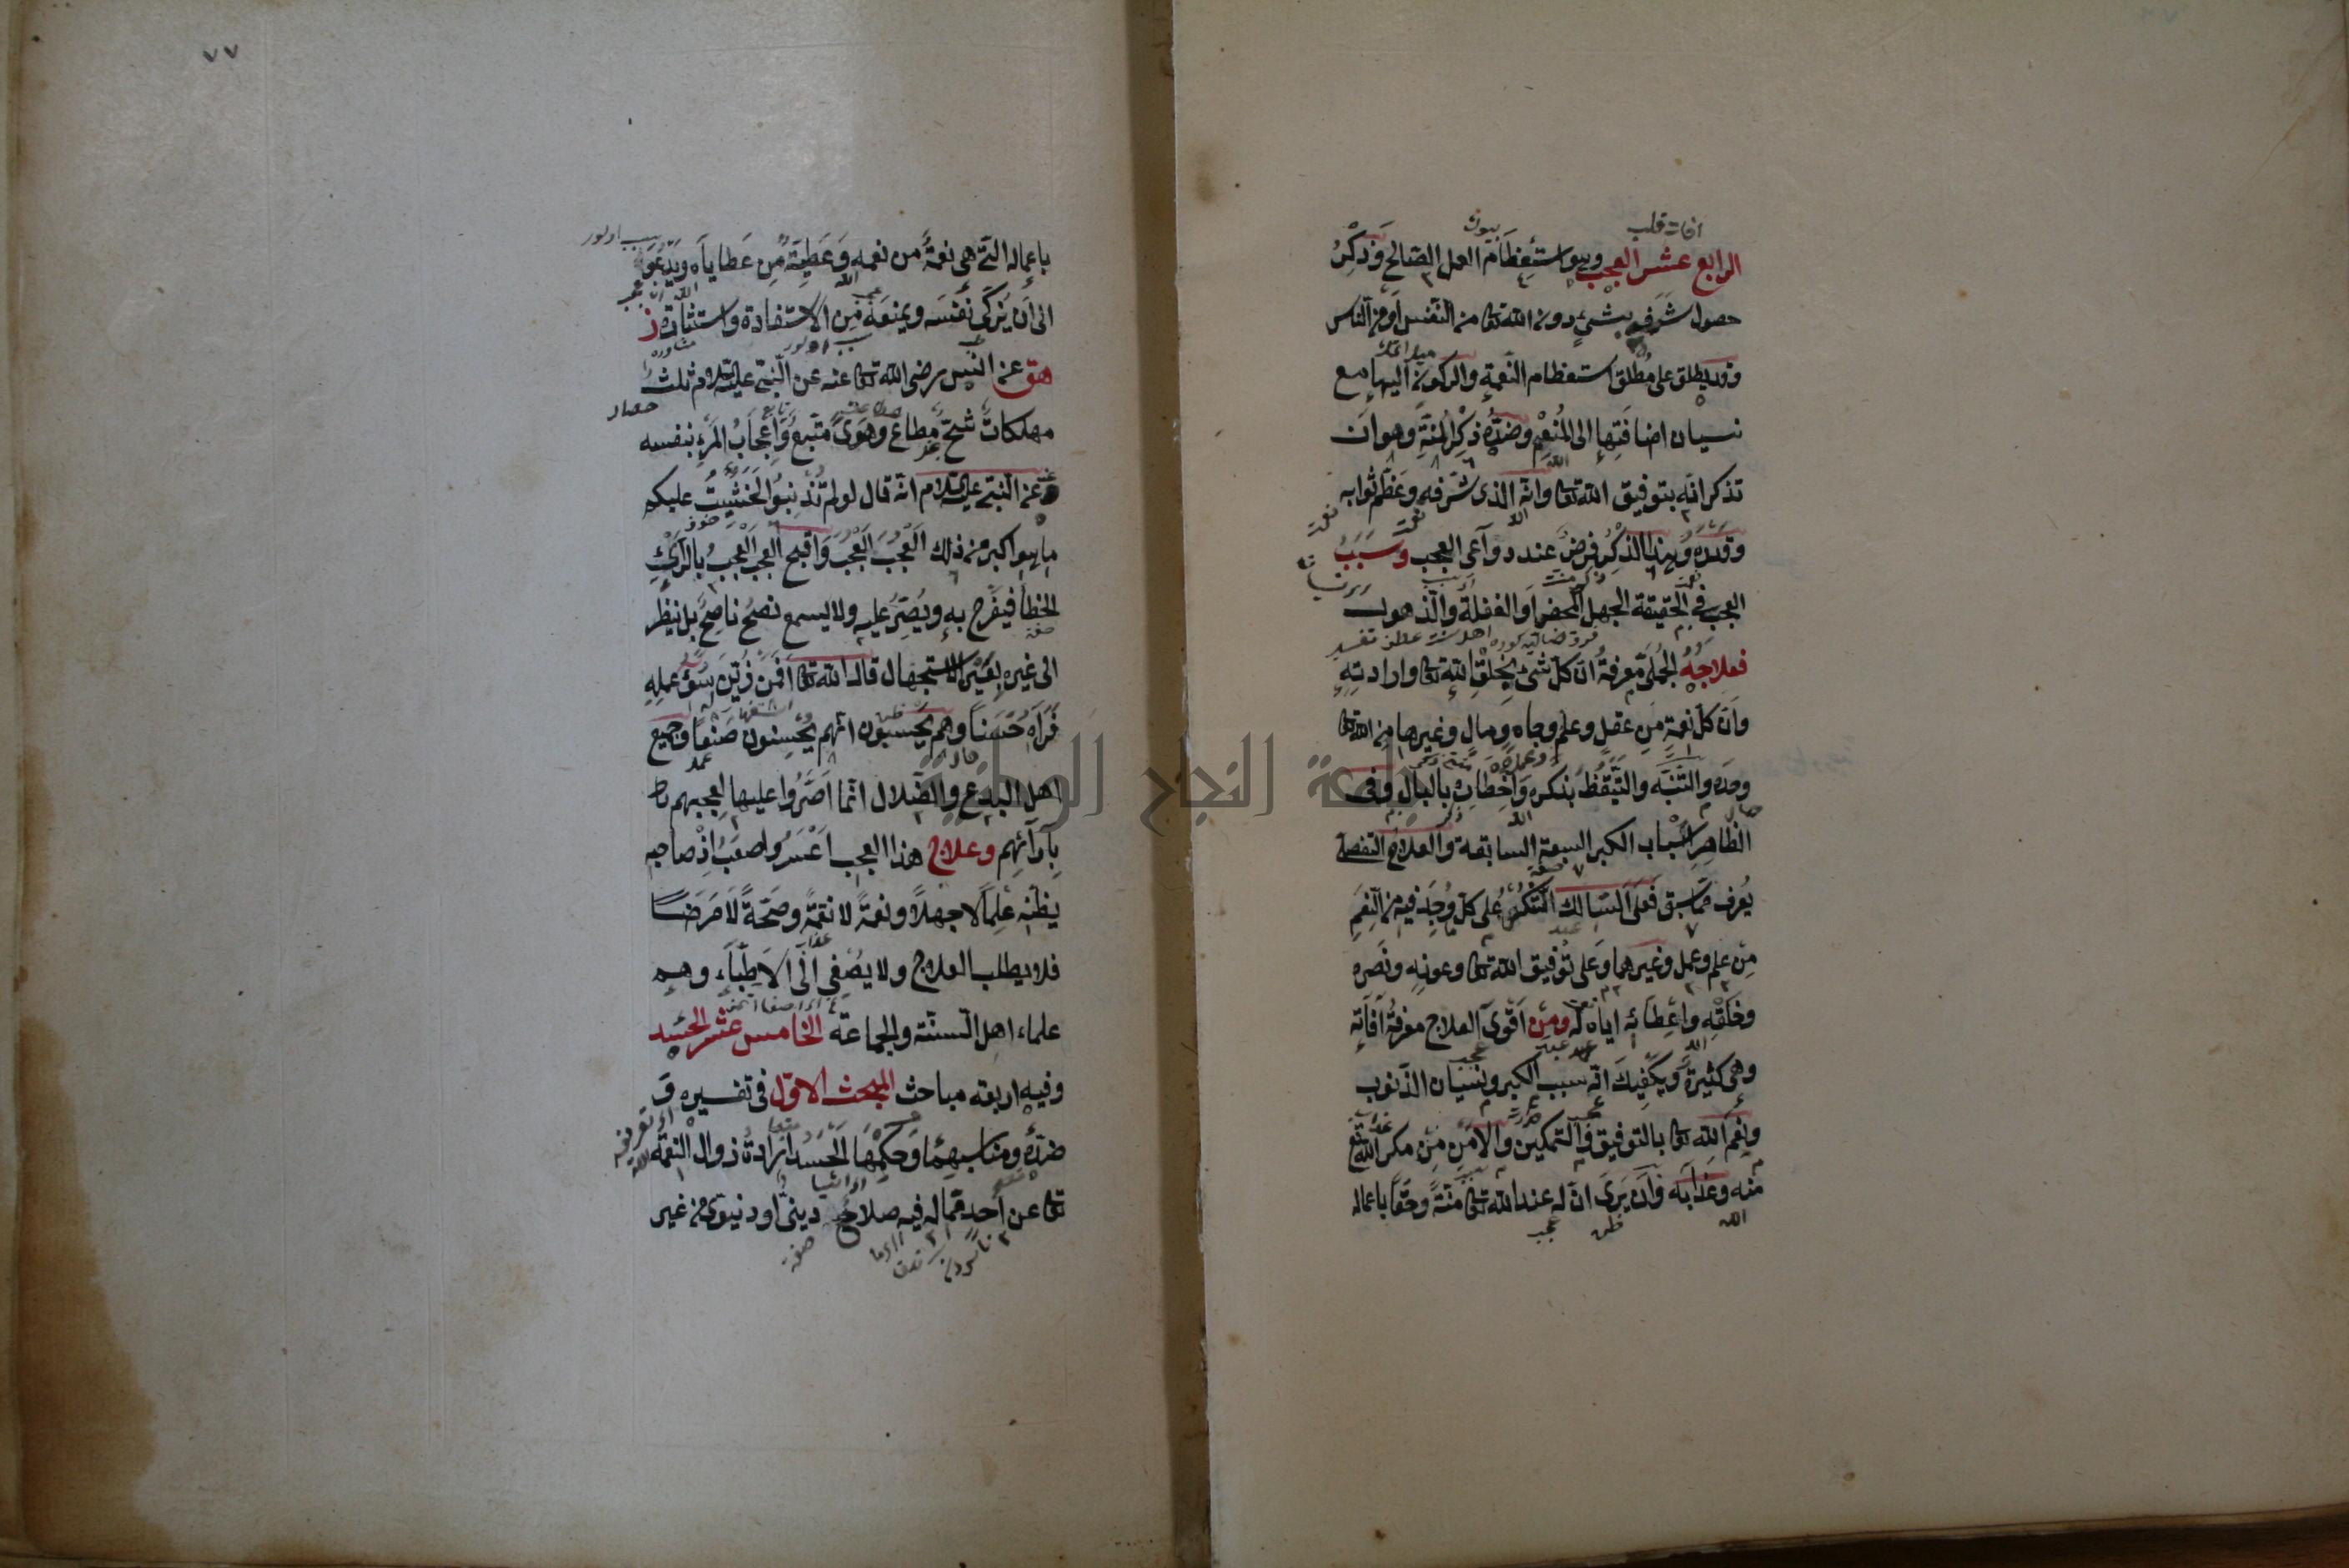 آفات قلب
الرابع عشر العجب وهو استعظام العمل الصالح وذكر
حصول شرفه بشيء دون الله تعا من النفس او من الناس
وقد يطلق على مطلق استعظام النعمة والركون اليها مع
نسيان اضافتها الى المنعم وضده ذكر المنة وهو ان
تذكر انه بتوفيق الله تعا وانه الذى شرفه وعظم ثوابه
وقدره وهذا الذكر فرض عند دواعى العجب وسبب
العجب فى الحقيقة الجهل المحض او الغفلة والذهول
فعلاجه الجملى معرفة ان كل شئ بخلق الله تعا وارادته
وان كل نعمة من عقل وعلم وجاه ومال وغيرها من الله تعا
وحده والتنبه والتيقظ بذكره واخطاره بالبال وفى
الظاهر اسباب الكبر السبعة السابقة والعلاج التفصيلى
يعرف مما سبق فعلى السالك الشكر على كل ما وجد فيه من النعم
من علم وعمل وغيرهما وعلى توفيق الله تعا وعونه ونصره
وخلقه واعطائه اياه له ومن اقوى العلاج معرفة آفاته
وهى كثيرة ويكفيك انه سبب الكبر ونسيان الذنوب
ونعم الله تعا بالتوفيق والتمكين والامن من مكر الله تع
منه وعذابه وان يرى ان له عند الله تعا منة وحقا باعماله
٧٧
باعماله التى هى نعمة من نعمه وعطية من عطاياه ويدعوه
الى ان يزكى نفسه ويمنعه من الاستفادة واستشارة ز
هق عن انس رضى الله تعا عنه عن النبى عليه السلام ثلث
مهلكات شح مطاع وهوى متبع واعجاب المرء بنفسه
وعنه عن النبى عليه السلام انه قال لو لم تذنبوا لخشيت عليكم
ما هو اكبر من ذلك العجب العجب واقبح العجب العجب بالرأى
الخطأ فيفرح به ويصر عليه ولا يسمع نصح ناصح بل ينظر
الى غيره بعين الاستجهال قال الله تعا افمن زين له سوء عمله
فرآه حسنا وهم يحسبون انهم يحسنون صنعا وجميع
اهل البدع والضلال انما اصروا عليها لعجبهم
بآرائهم وعلاج هذا العجب اعسر واصعب اذ صاحبه
يظنه علما لا جهلا ونعمة لا نقمة وصحة لا مرضا
فلا يطلب العلاج ولا يصغى الى الاطباء وهم
علماء اهل السنة والجماعة الخامس عشر الحسد
وفيه اربعة مباحث المبحث الاول فى تفسيره و
ضده ومناسبهما وحكمها الحسد ارادة زوال النعمة
تعا عن احد مما له فيه صلاح دينى او دنيوى من غير